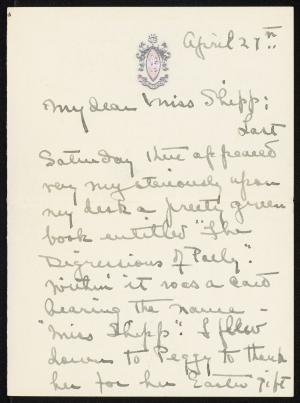 April 27th.
My dear Miss Shipp:
Last
Saturday there appeared
very mysteriously upon
my desk a pretty green
book entitled "The
Digressions of Polly".
Within it was a card
bearing the name -
"Miss Shipp". I flew
down to Peggy to thank
her for her Easter gift